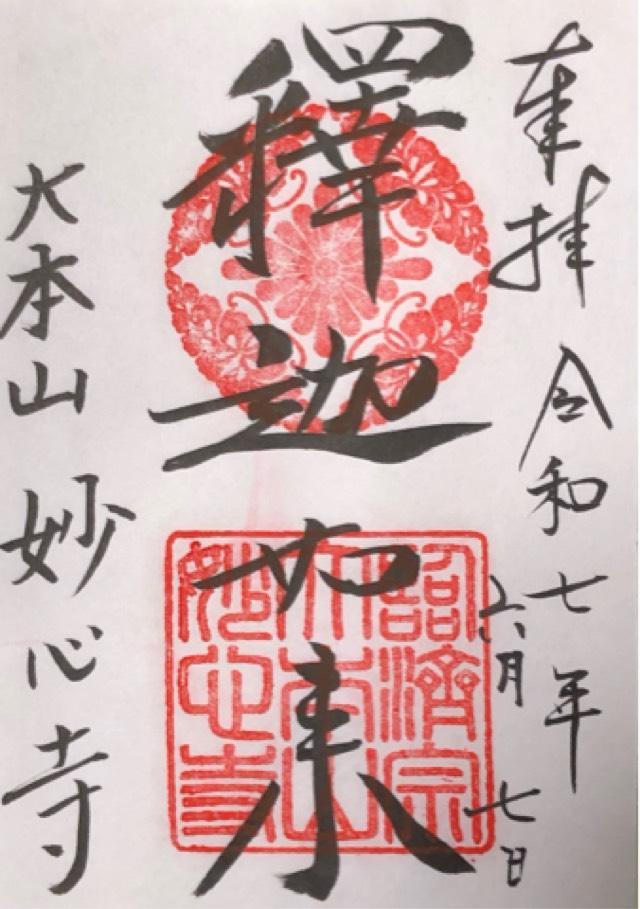 奉拝
令和七年
六月七日
釋迦如来
臨済宗
大本山
妙心寺
大本山 妙心寺